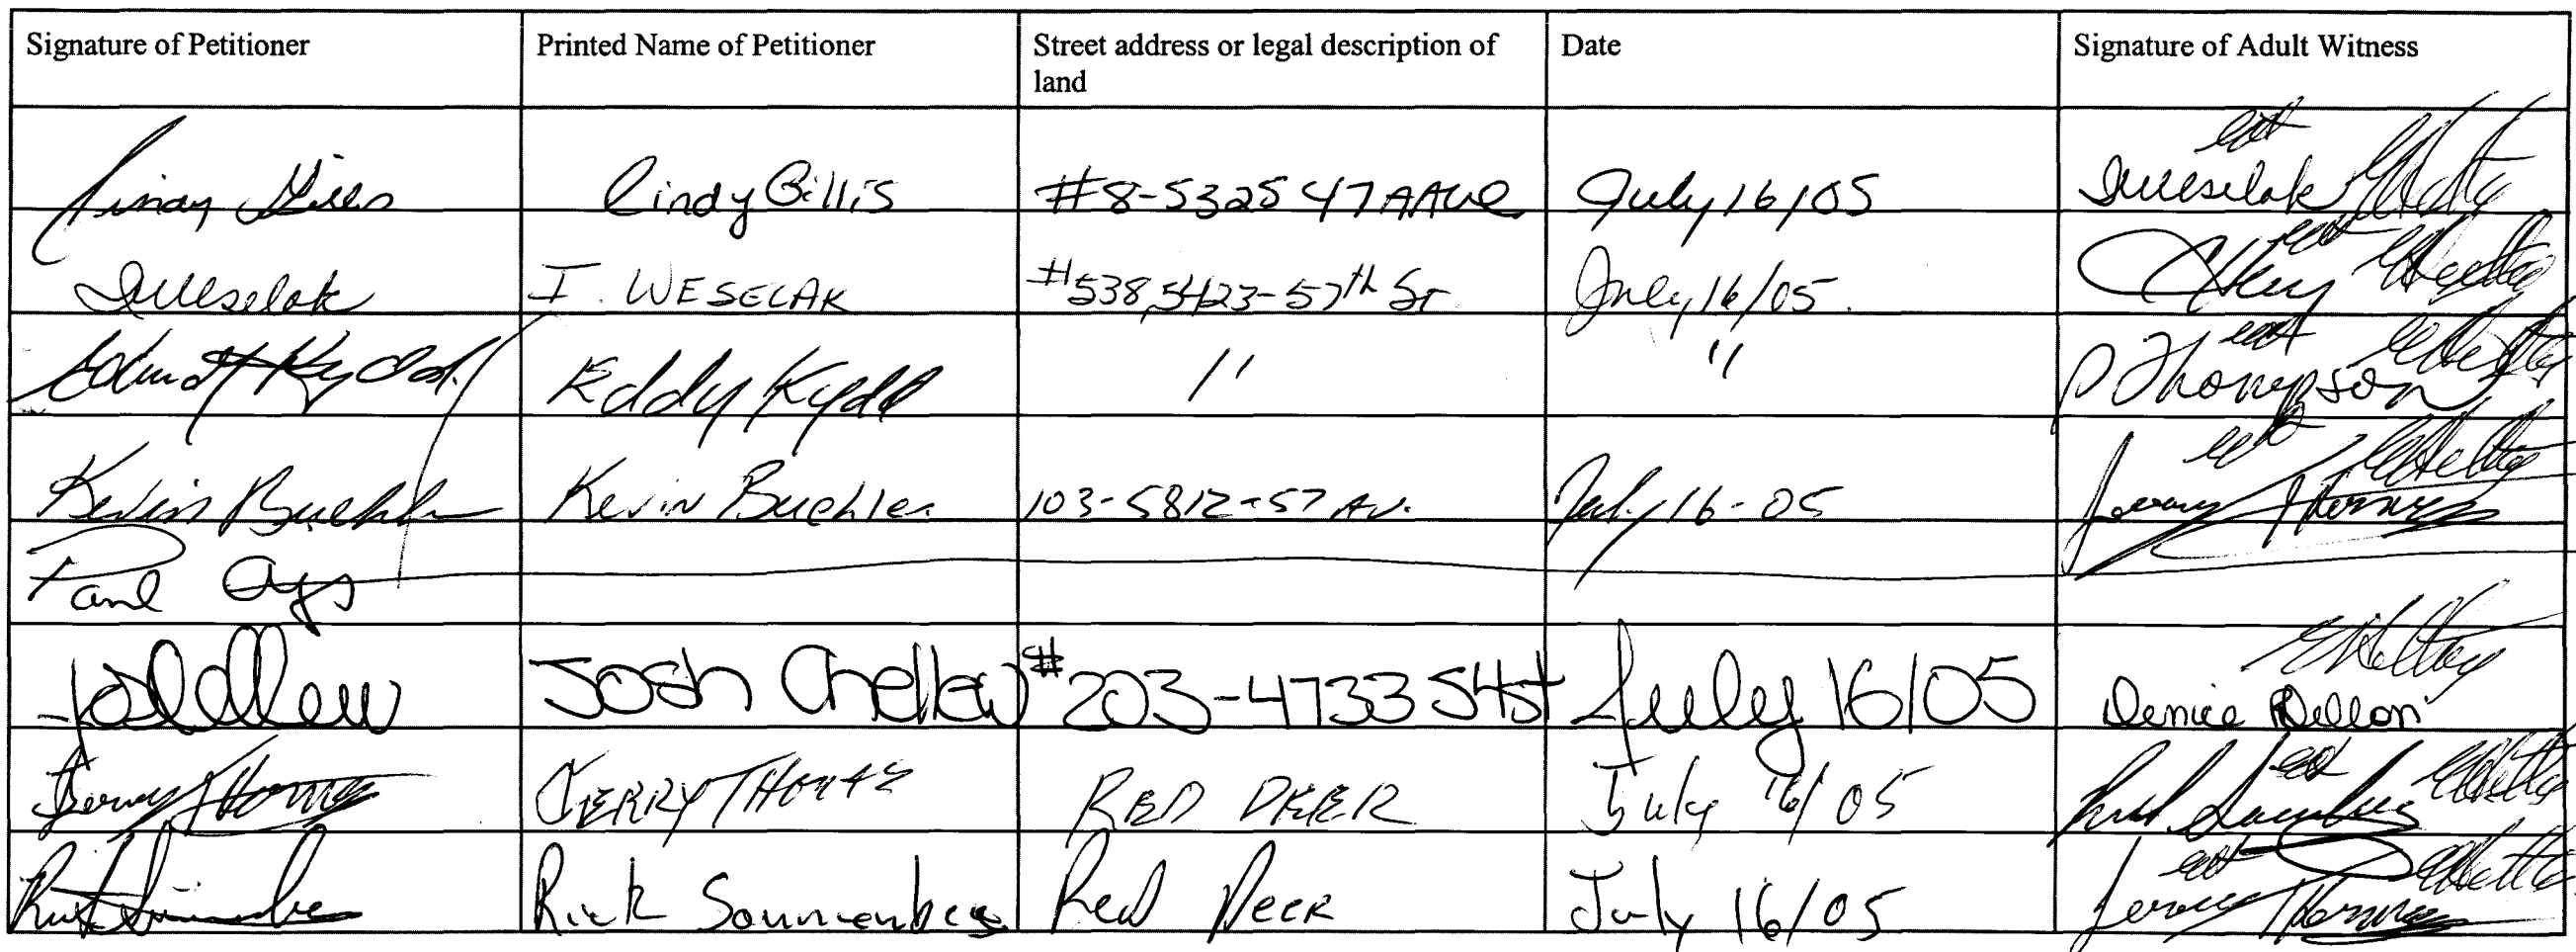 Signature of Petitioner Printed Name of Petitioner Street address or legal description of land Date Signature of Adult Witness
Cindy Gillis Cindy Gillis #8-5325 47 A Ave July 16/05 IWeselak
IWeselak I. WESELAK #538, 5423-57th St July 16/05.
Kydd Eddy Kydd " " P Thompson
Kevin Buehler Kevin Buehler 103-5812-57 Av. July 16-05 Jerry Thomas
Paul
Josh Chellew #203-4733 54st July 16/05 Denice Dillon
Jerry Thomas JERRY THOMAS RED DEER July 16/05
Rick Sonnenberg Red Deer July 16/05 Jerry Thomas